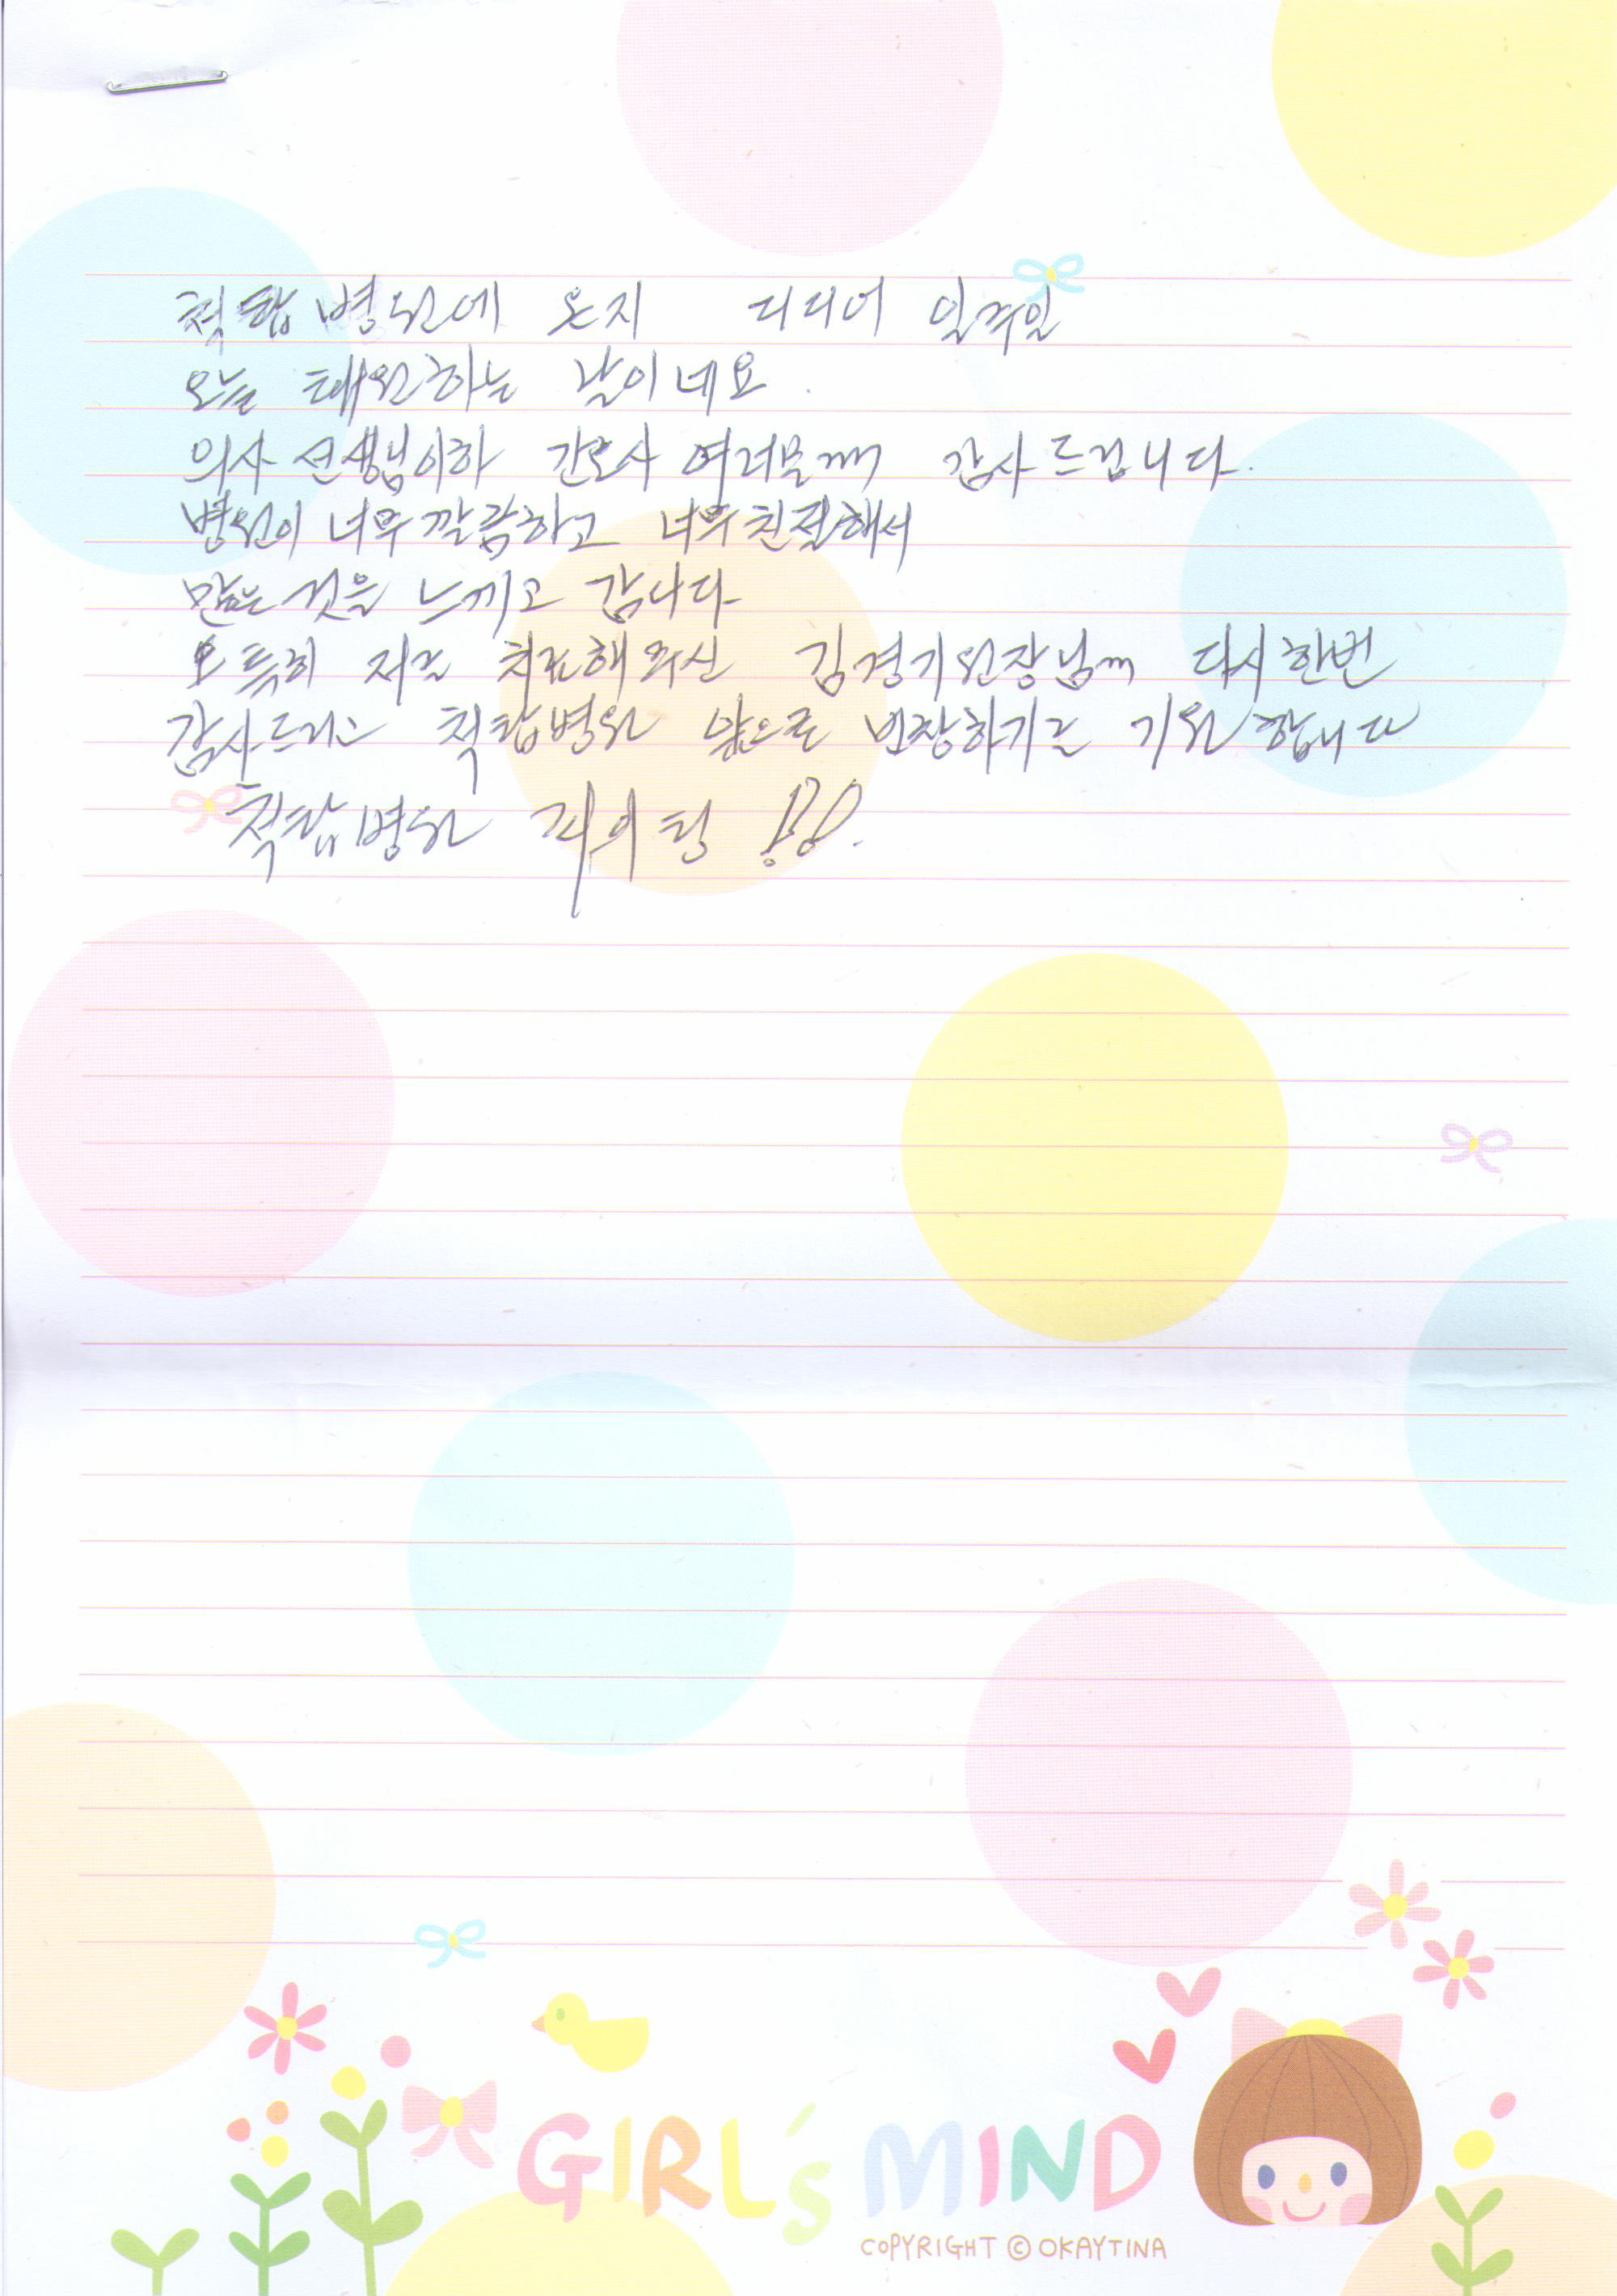 척탑병원에 온지 디디어 일주일
오늘 퇴원하는 날이네요.
의사 선생님이하 간호사 여러분께 감사드립니다.
병원이 너무 깔끔하고 너무친절해서
많은 것을 느끼고 갑니다
특히 저를 치료해 주신 김경기원장님께 다시한번
감사드리고 척탑병원 앞으로 번창하기를 기원합니다
척탑병원 화이팅 !!!.
GIRL's MIND
COPYRIGHT © OKAYTINA